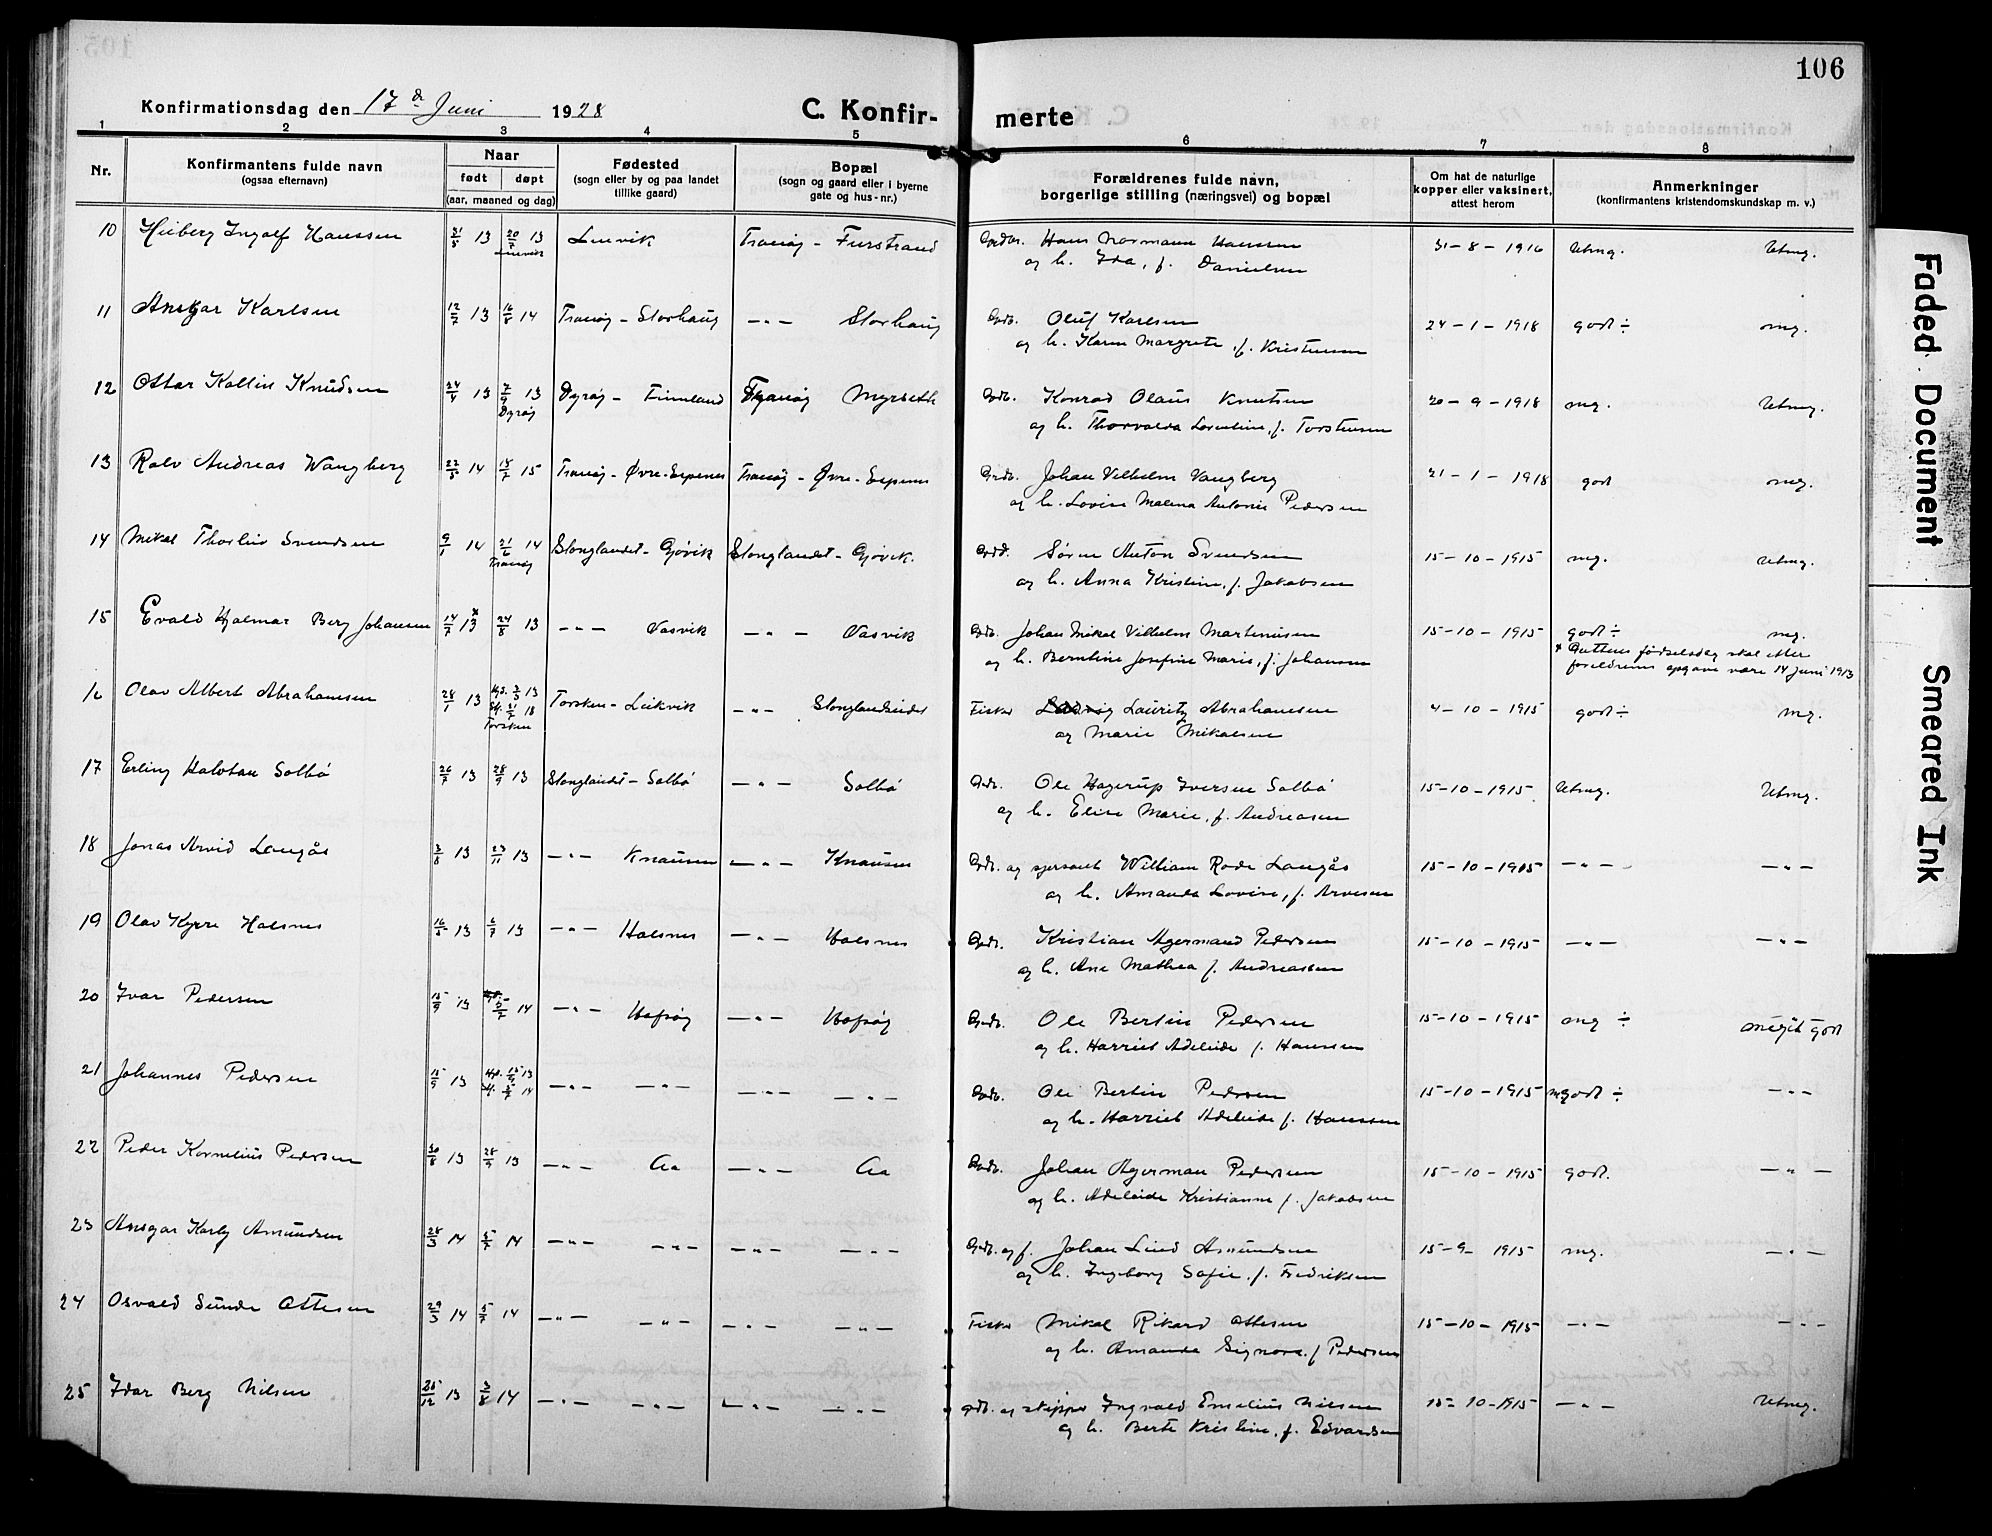 106
Konfirmationsdag den 17de Juni 1928
C. Konfirmerte
1 2 3 4 5 6 7 8
Nr.
Konfirmantens fulde navn
(ogsaa efternavn)
Naar
født døpt
(aar, maaned og dag)
Fødested
(sogn eller by og paa landet
tillike gaard)
Bopæl
(sogn og gaard eller i byerne
gate og hus-nr.)
Forældrenes fulde navn,
borgerlige stilling (næringsvei) og bopæl
Om hat de naturlige
kopper eller vaksinert,
attest herom
Anmerkninger
(konfirmantens kristendomskundskap m. v.)
10 Hieberg Ingolf Hanssen 13 20/7 13 Lenvik Tranøy - Furstrand Hans Normann Hanssen 31-8-1916 Utmg. Utmg.
Lenvik
og h. Ida, f. Danielsen
11 Ansgar Karlsen 12/7 13 16/8 14 Tranøy - Storhaug -"- Storhaug Gdb. Oluf Karlsen 24-1-1918 godt ÷ mg.
og h. Karen Margrete, f. Kristensen
12 Ottar Kollin Knudsen 24/4 13 7/9 13 Dyrøy - Finnland Tranøy Myrseth Gdb. Konrad Olaus Knutsen 20-9-1918 mg. Utmg.
Dyrøy
og h. Thorvalda Lorentine, f. Torstensen
13 Rolv Andreas Wangberg 22/5 14 18/7 15 Tranøy - Øvre-Espenes Tranøy - Øvre-Espenes Grdb. Johan Vilhelm Vangberg 21-1-1918 godt mg.
og h. Lovise Malena Antonie Pedersen
14 Mikal Thorleiv Svendsen 9/1 14 21/6 14 Stonglandet - Gjøvik Stonglandet - Gjøvik. Søren Anton Svendsen 15-10-1915 mg. Utmg.
Tranøy
og h. Anna Kristine, f. Jakobsen
15 Evald Hjalmar Berg Johansen 14/7 13 x 24/8 13 -"- Vasvik -"- Vasvik Gdb. Johan Mikal Vilhelm Martinusen 15-10-1915 godt ÷ mg.
og h. Berntine Josefine Marie, f. Johansen
x Guttens fødselsdag skal etter
foreldrenes opgave være 14 juni 1913
16 Olav Albert Abrahamsen 28/1 13 Hjd. 2/3 13 Torsken - Leikvik -"- Stonglandseidet Fisker Lauritz Abrahamsen 4-10-1915 godt ÷ mg.
Torsken
og Marie Mikalsen
17 Erling Halvdan Solbø 26/7 13 28/9 13 Stonglandet - Solbø -"- Solbø Gdb. Ole Hagerup Iversen Solbø 15-10-1915 Utmg. Utmg.
og h. Elise Marie, f. Andreasen
18 Jonas Arvid Langås 3/8 13 23/11 13 -"- Knausen -"- Knausen Gdb. og sersant William Rode Langås 15-10-1915 -"- -"-
og h. Amanda Lovise, f. Arvesen
19 Olav Kyrre Halsnes 16/5 13 6/7 13 -"- Halsnes -"- Halsnes Gdb. Kristian Agermand Pedersen 15-10-1915 -"- -"-
og h. Ane Mathea f. Andreassen
20 Ivar Pedersen 15/9 13 5/7 14 -"- Hofsøy -"- Hofsøy Gdb. Ole Bertin Pedersen 15-10-1915 mg ÷ meget godt
og h. Harriet Adeleide f. Hanssen
21 Johannes Pedersen 15/9 13 Hjd. 15/9 13 -"- -"- -"- -"- Gdb. Ole Bertin Pedersen 15-10-1915 mgodt ÷ -"-
St. 5/7 14
og h. Harriet Adeleide f. Hanssen
22 Peder Kornelius Pedersen 30/8 13 28/9 13 -"- Aa -"- Aa Gdb. Johan Agerman Pedersen 15-10-1915 godt. -"-
og h. Adeleide Kristianne f. Jakobsen
23 Ansgar Karly Amundsen 28/3 14 5/7 14 -"- -"- -"- -"- Gdb. og f. Johan Lind Amundsen 15-9-1915 mg. -"-
og h. Ingeborg Sofie, f. Fredriksen
24 Osvald Sunde Ottesen 29/3 14 5/7 14 -"- -"- -"- -"- Fisker Mikal Rikard Ottesen 15-10-1915 -"- -"-
og h. Amanda Signora f. Pedersen
25 Idar Berg Nilsen 25/12 13 3/8 14 -"- -"- -"- -"- gdb. og skipper Ingvald Emelius Nilsen 15-10-1915 -"- Utmg.
og h. Berte Kristine, f. Edvardsen
Faded Document
Smeared Ink